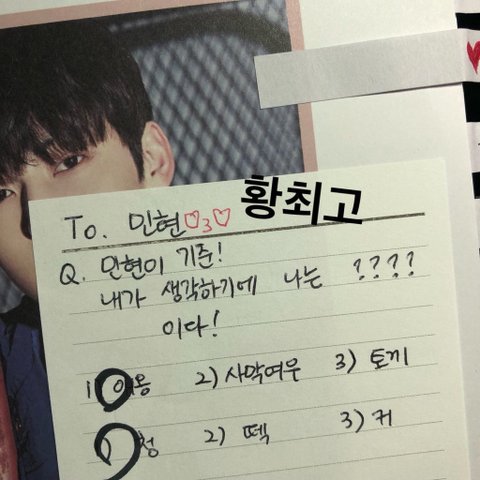 To. 민현♡3♡ 황최고
Q. 민현이 기준!
내가 생각하기에 나는 ????
이다!
1) 여옹 2) 사막여우 3) 토끼
1) 청 2) 떽 3) 커